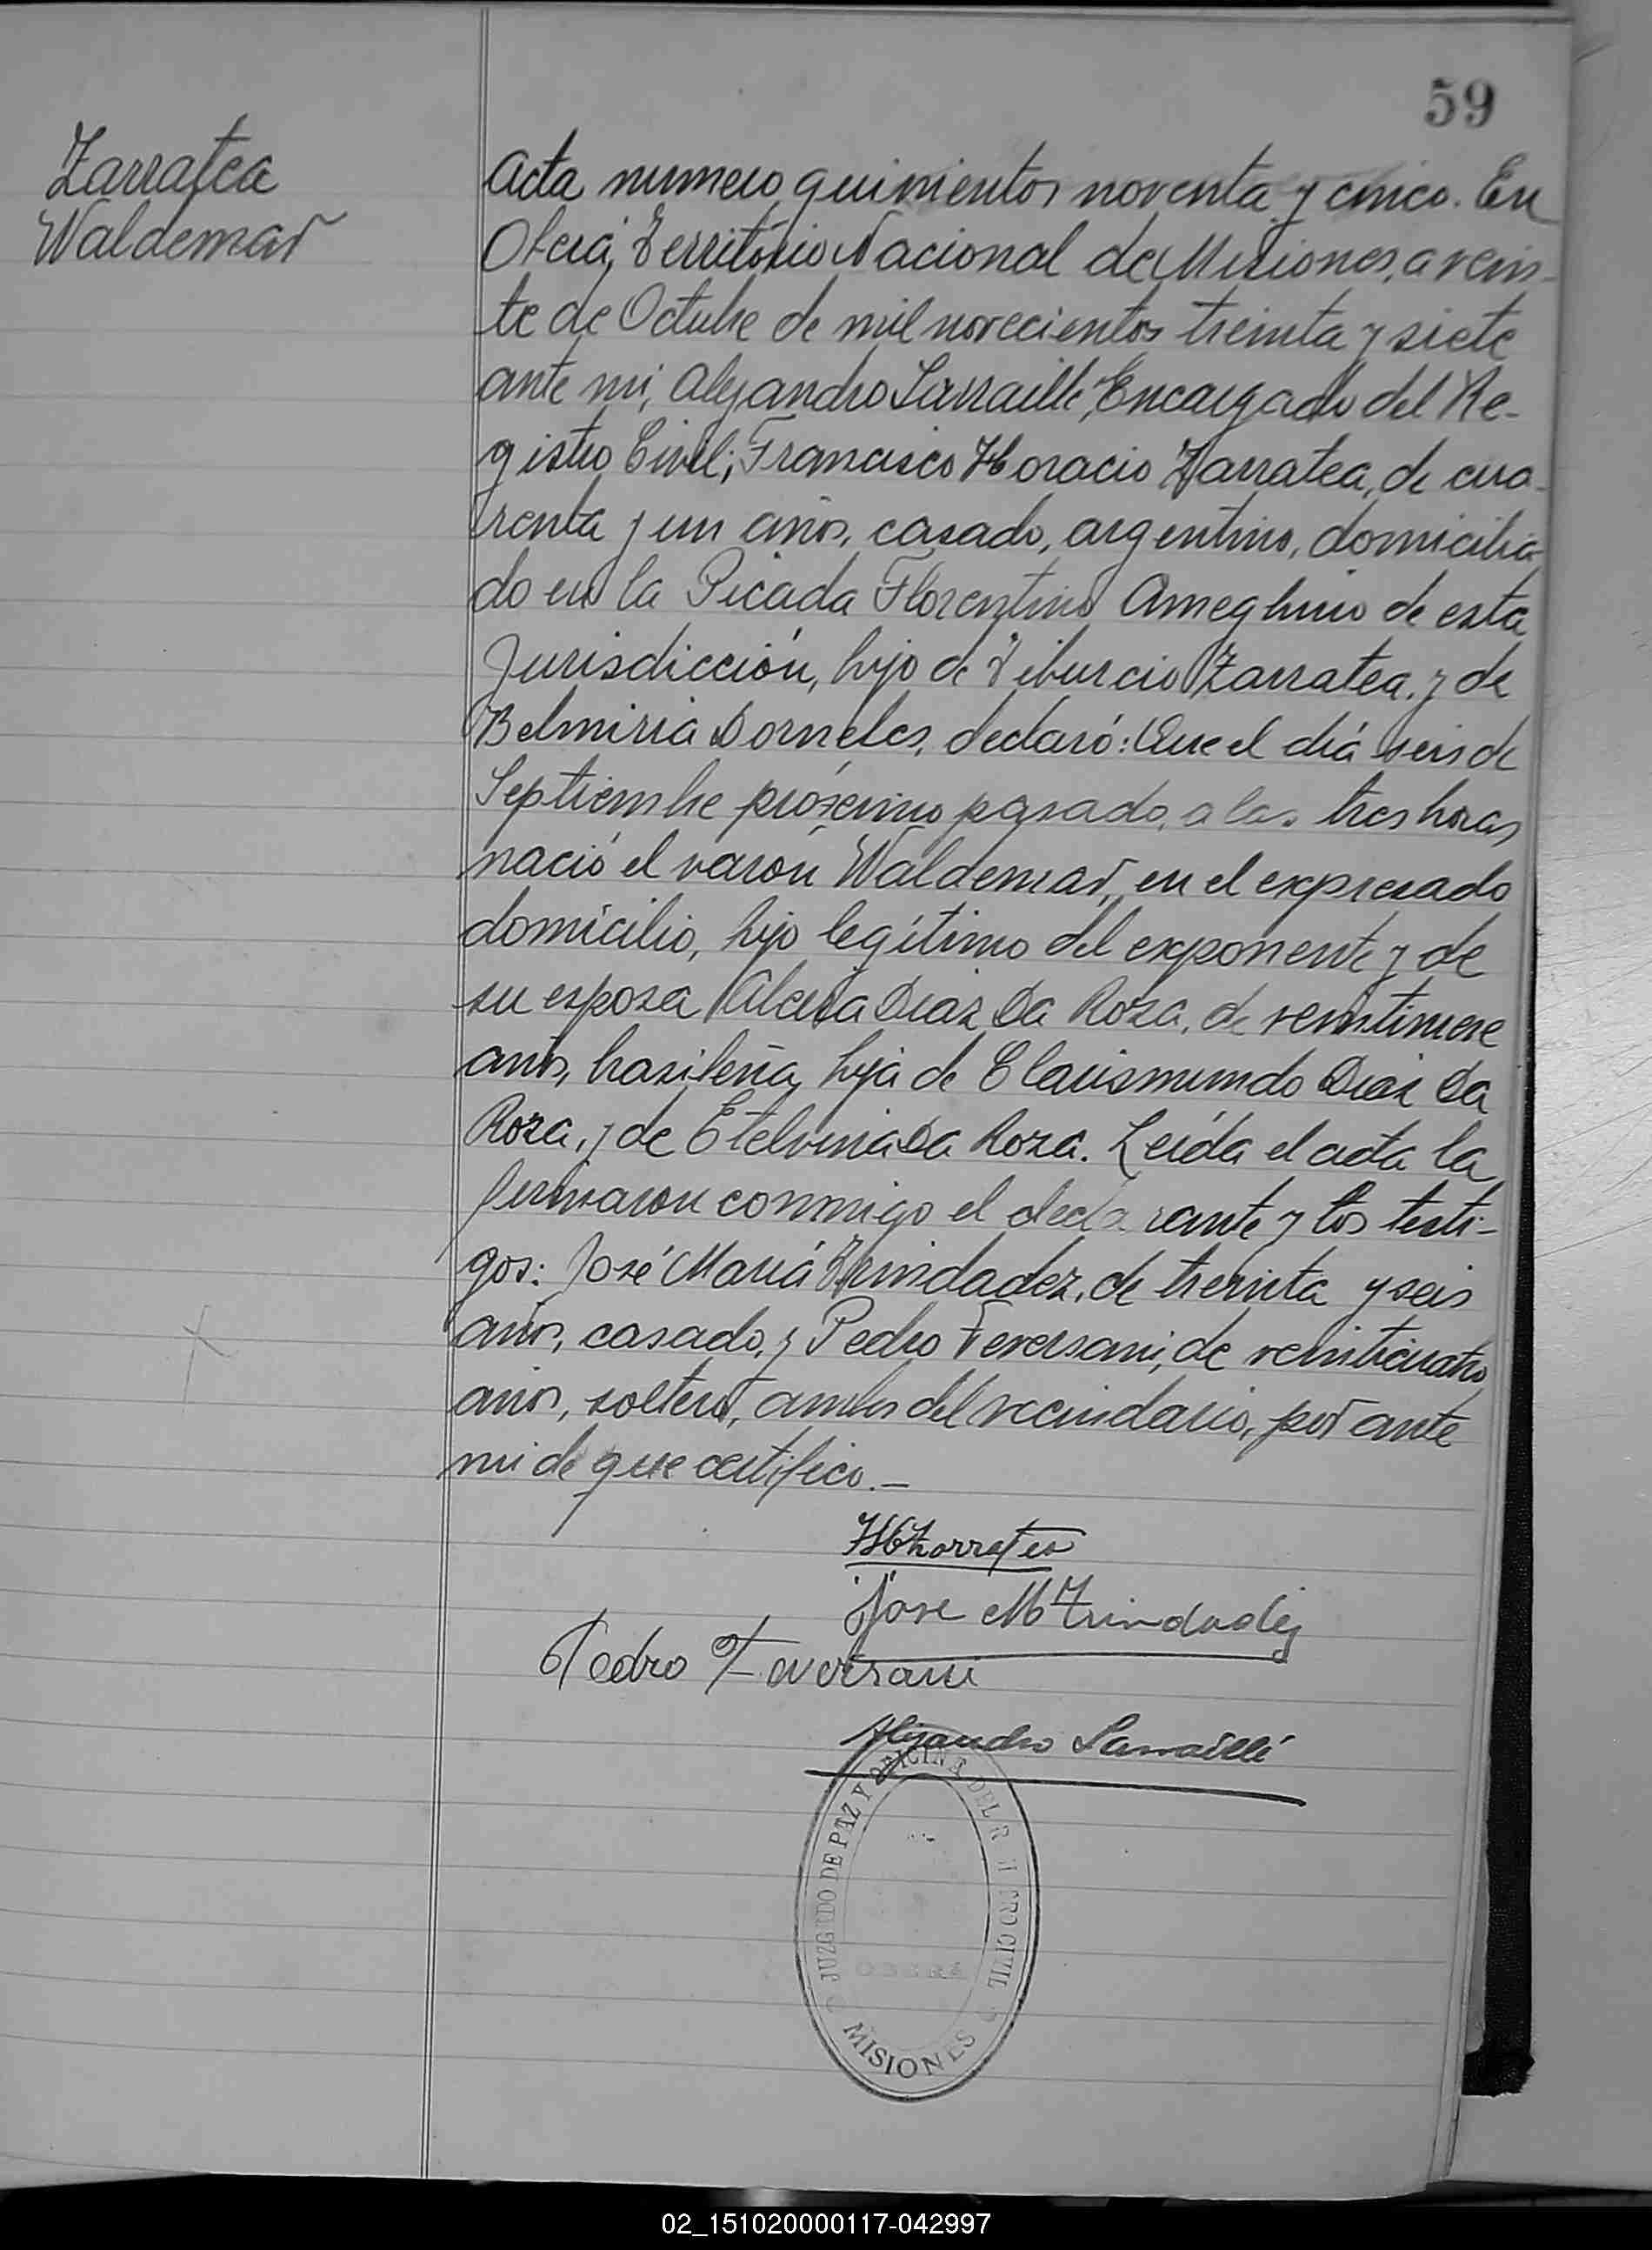 59
Zarratea
Waldemar
Acta numero quinientos noventa y cinco. En
Oberá, Territorio Nacional de Misiones, a vein-
te de Octubre de mil novecientos treinta y siete
ante mi, Alejandro Sarraillé, Encargado del Re-
gistro Civil; Francisco Horacio Zarratea, de cua-
renta y un años, casado, argentino, domicilia-
do en la Picada Florentino Ameghino de esta
Jurisdicción, hijo de Tiburcio Zarratea, y de
Belmiria Dorneles, declaró: Que el día seis de
Septiembre próximo pasado, a las tres horas
nació el varón Waldemar, en el expresado
domicilio, hijo legítimo del exponente y de
su esposa Diaz Da Roza, de veintinueve
años, brasileña, hija de Clarismundo Diaz Da
Roza, y de Etelvina Da Roza. Leída el acta la
firmaron conmigo el declarante y los testi-
gos: José María Trindadez, de treinta y seis
años, casado, y Pedro Feversani, de veinticuatro
años, soltero, ambos del vecindario, por ante
mi de que certifico.—
FHZarratea
Jose M Trindadez
Pedro Feversani
Alejandro Sarraillé
JUZGADO DE PAZ Y OFICINA DEL CIVIL
OBERÁ
MISIONES
02_151020000117-042997